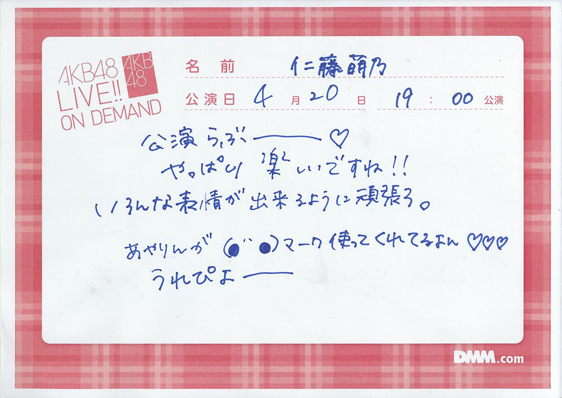 AKB48
LIVE!!
ON DEMAND
AKB
48
名前 仁藤萌乃
公演日 4月20日 19:00公演
公演らぶ——♡
やっぱり楽しいですね!!
いろんな表情が出来るように頑張ろ。
あやりんが(●¨●)マーク使ってくれてるよん♡♡♡
うれぴよ——
DMM.com